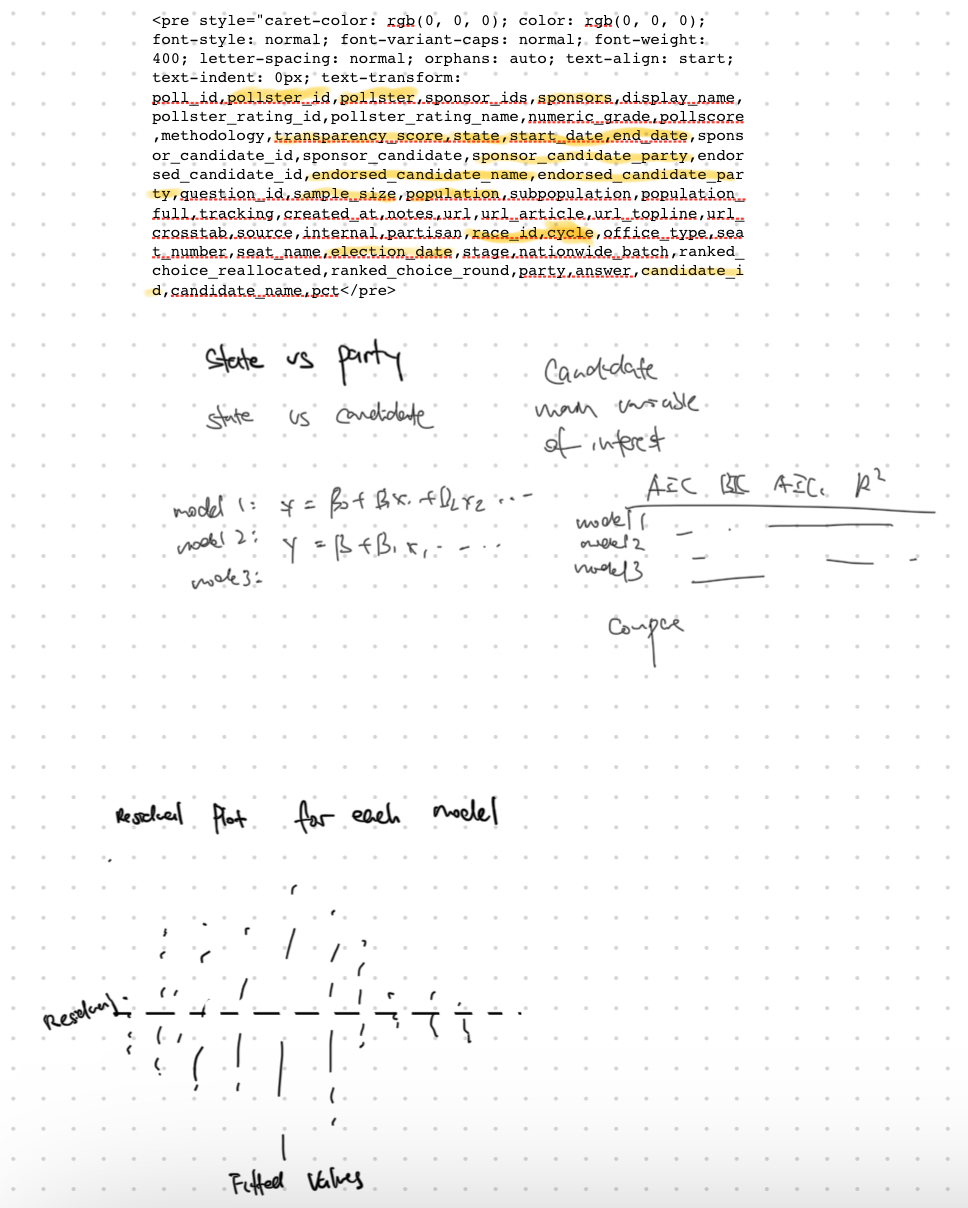 <pre style="caret-color: rgb(0, 0, 0); color: rgb(0, 0, 0);
font-style: normal; font-variant-caps: normal; font-weight:
400; letter-spacing: normal; orphans: auto; text-align: start;
text-indent: 0px; text-transform:
poll_id,pollster_id,pollster,sponsor_ids,sponsors,display_name,
pollster_rating_id,pollster_rating_name,numeric_grade,pollscore
,methodology,transparency_score,state,start_date,end_date,spons
or_candidate_id,sponsor_candidate,sponsor_candidate_party,endor
sed_candidate_id,endorsed_candidate_name,endorsed_candidate_par
ty,question_id,sample_size,population,subpopulation,population_
full,tracking,created_at,notes,url,url_article,url_topline,url_
crosstab,source,internal,partisan,race_id,cycle,office_type,sea
t_number,seat_name,election_date,stage,nationwide_batch,ranked_
choice_reallocated,ranked_choice_round,party,answer,candidate_i
d,candidate_name,pct</pre>
State vs party
state vs candidate
Candidate
main variable
of interest
model 1: Y = β0 + β1x1 + β2x2 ...
model 2: Y = β + β1 x1 - - ...
mode3:
AIC BIC AICc R²
model1
model2
model3
Compare
Residual Plot for each model
Residual
Fitted Values